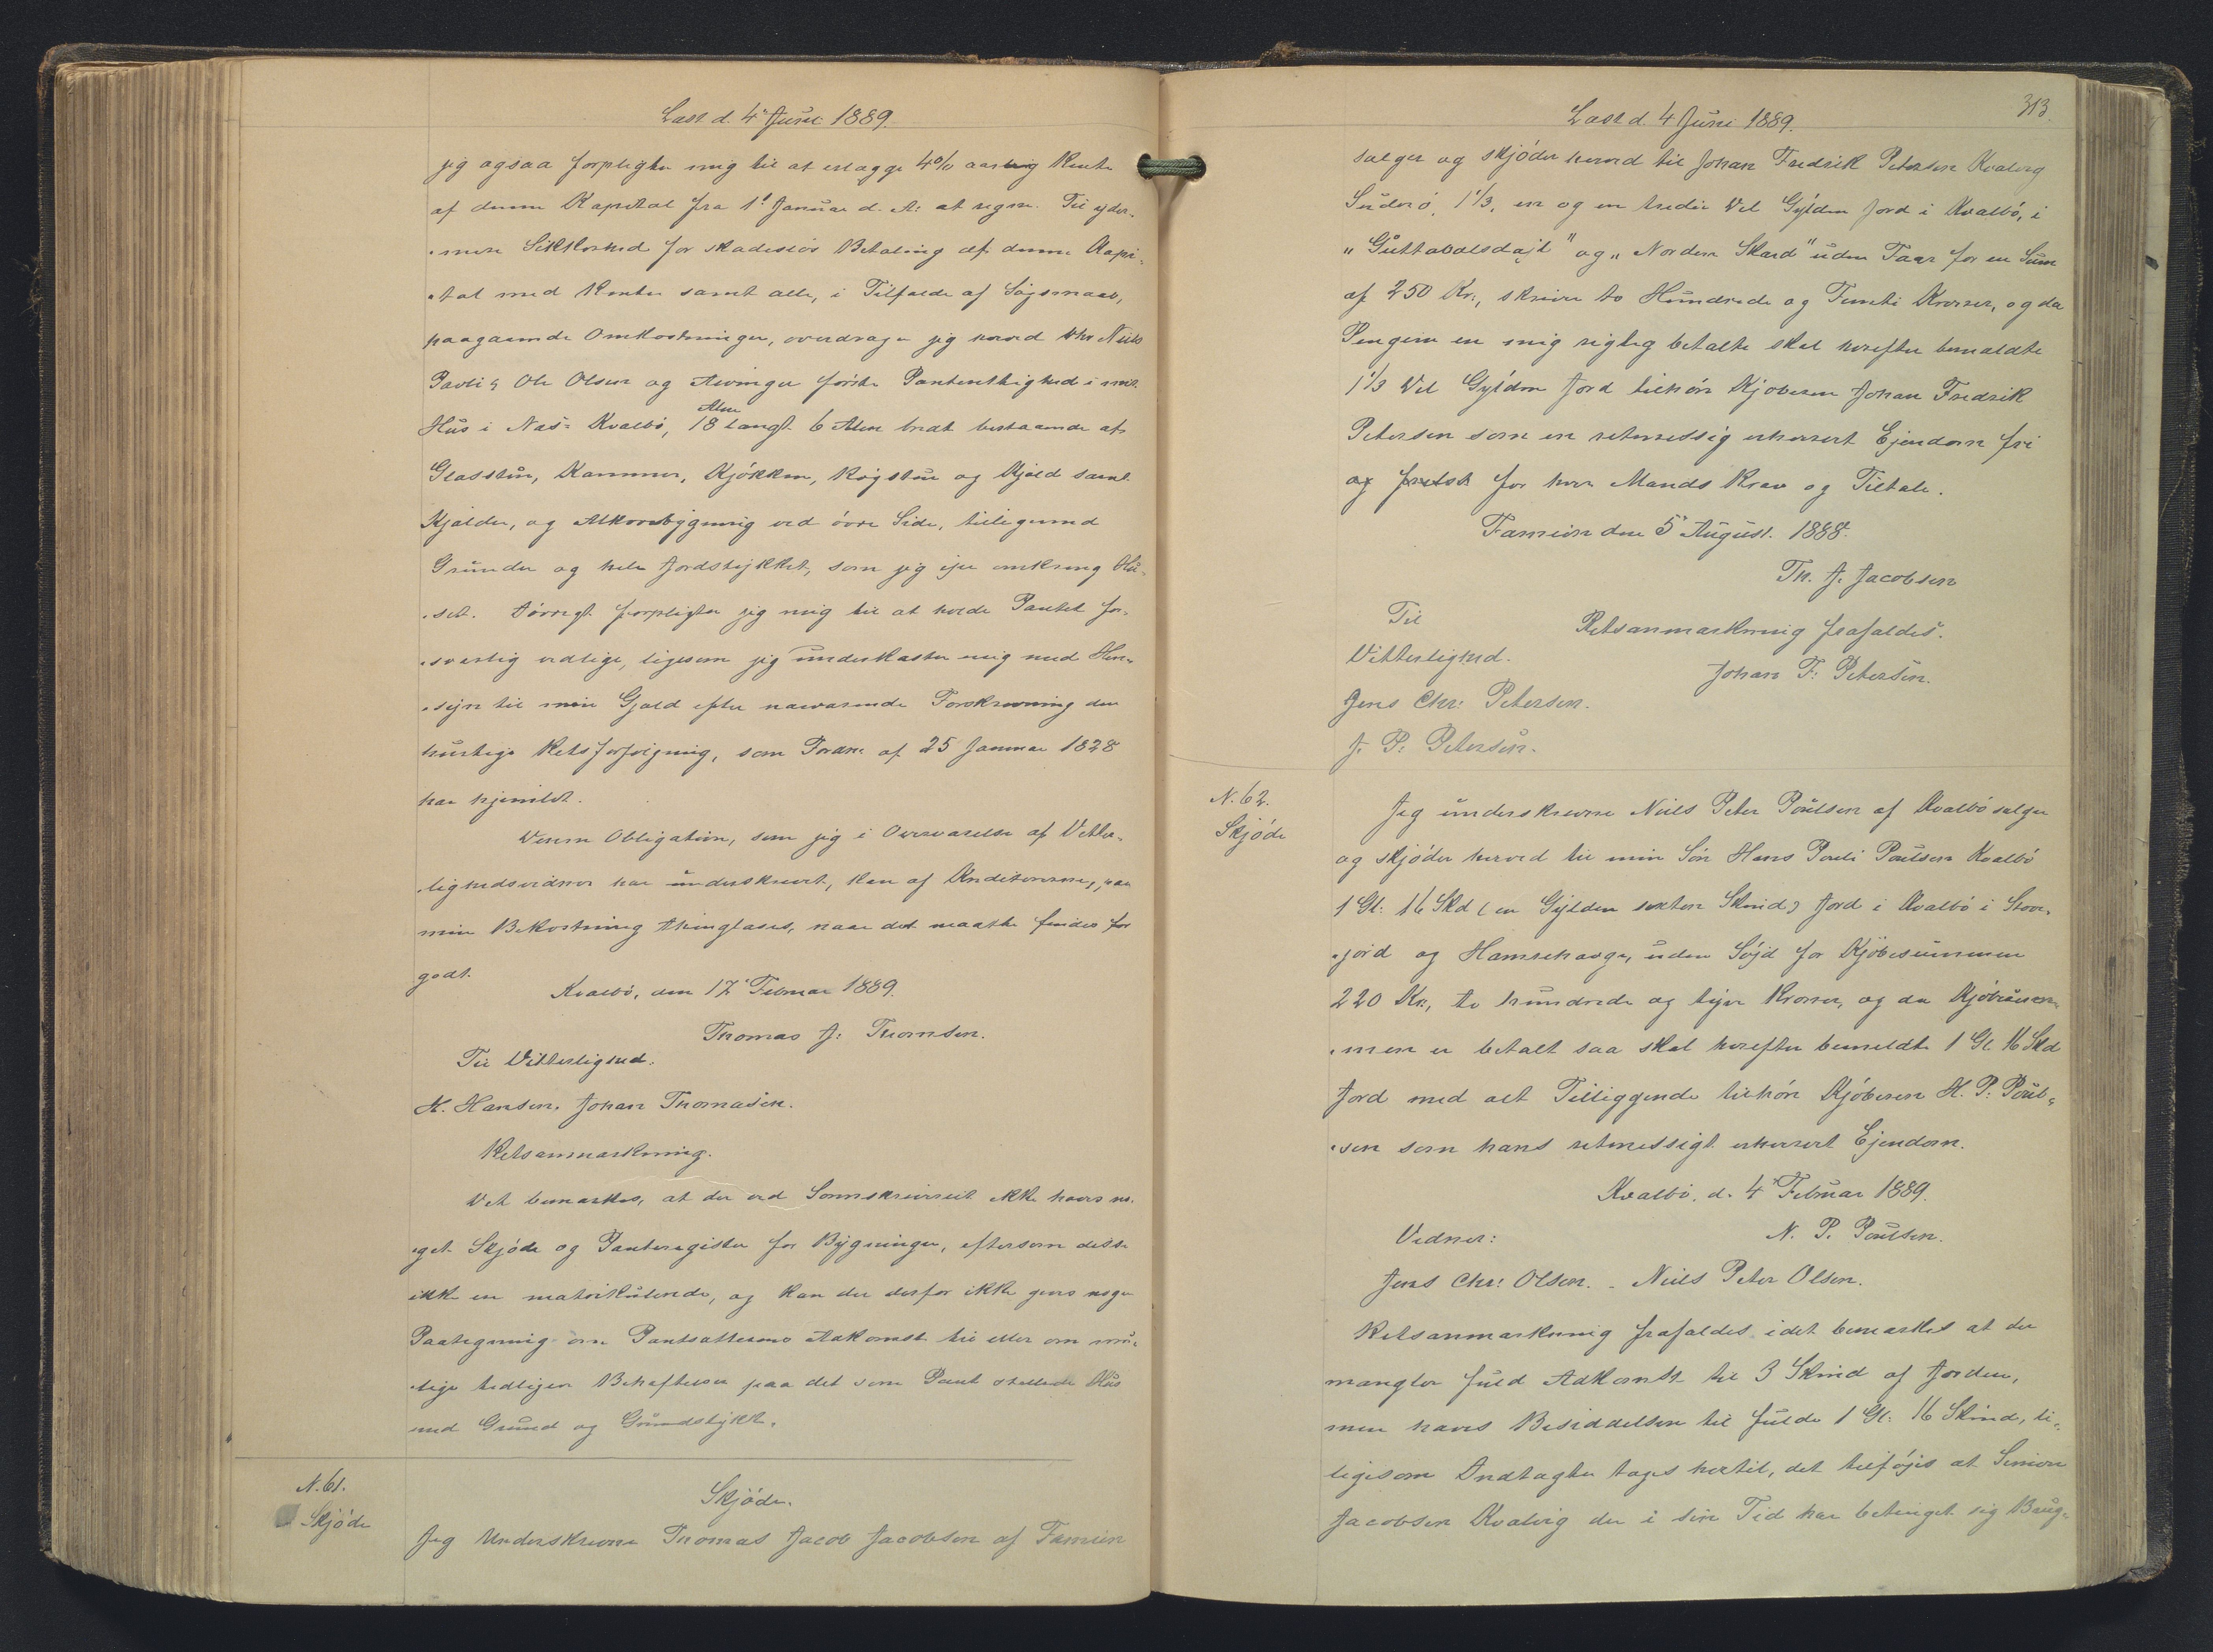 Læst d. 4' Juni 1889.
jeg ogsaa forpligter mig til at erlægge 4% aarlig Rente
af denne Kapital fra 1' Januar d. A: at regne. Til yder-
-mere Sikkerhed for skadeslös Betaling af denne Kapi-
-tal med Renter samt alle, i Tilfælde af Sögsmaal,
paagaaende Omkostninger, overdrager jeg herved Hr Niels
Pavli & Ole Olsen og Arvinger förste Panterettighed i mit
Hus i Næs-Kvalbö, 18 Alen langt 6 Alen bredt bestaaende af
Glasstue, Kammer, Kjökken, Rögstue og Hjald samt
Kjælder, og Alkovebygning ved övre Side, tilligemed
Grunden og hele Jordstykket, som jeg ejer omkring Hu-
-set. Iövrigt forpligter jeg mig til at holde Pantet for-
-svarlig vedlige, ligesom jeg underkaster mig med Hen-
-sejn til min Gjæld efter nærværende Forskrivning den
hurtige Retsforfölgning, som Fordn. af 25 Januar 1828
har hjemlet.
Denne Obligation, som jeg i Overværelse af Vitter-
-lighedsvidner har underskrevet, kan af Kreditorerne, paa
min Bekostning thinglæses, naar det maatte findes for
godt.
Kvalbö, den 17' Februar 1889.
Thomas J: Thomsen.
Til Vitterlighed.
H. Hansen. Johan Thomasen.
Retsanmærkning.
Det bemærkes, at der ved Sorenskriveriet ikke haves no-
-get Skjöde og Panteregister for Bygninger, eftersom disse
ikke er matrikulerede, og kan der derfor ikke gives nogen
Paategning om Pantsætterens Adkomst til eller om mu-
-lige tidligere Behæftelser paa det som Pant stillede Hus
med Grund og Grundstykke.
N. 61.
Skjöde
Skjöde.
Jeg Underskrevne Thomas Jacob Jacobsen af Famien
313.
Læst d. 4 Juni 1889.
sælger og skjöder herved til Johan Fredrik Petersen Kvalvig
Suderö, 1 1/3, en og en tredie Del Gylden Jord i Kvalbö, i
"Guttavalsdajl" og "Nordern Skard" uden Faar for en Sum
af 250 Kr., skriver to Hundrede og Femti Kroner, og da
Pengene er mig rigtig betalte skal herefter bemældte
1 1/3 Del Gylden Jord tilhöre Kjöberen Johan Fredrik
Petersen som en retmessig erhvervet Ejendom fri
og frelst for hver Mands Krav og Tiltale.
Famien den 5' August. 1888.
Th. J. Jacobsen
Til
Vitterlighed.
Jens Chr: Petersen.
J. P: Petersen.
Retsanmærkning frafaldes.
Johan F: Petersen.
N. 62.
Skjöde
Jeg underskrevne Niels Peter Poulsen af Kvalbö sælger
og skjöder herved til min Sön Hans Pouli Poulsen Kvalbö
1 Gl: 16 Skd (en Gylden sexten Skind) Jord i Kvalbö i Stoor-
-jord og Hamrehauge, uden Söjd for Kjöbesummen
220 Kr., to hundrede og tyve Kroner, og da Kjöbesum-
-men er betalt saa skal herefter bemeldte 1 Gl 16 Skd
Jord med alt Tilliggende tilhöre Kjöberen H. P: Poul-
-sen som hans retmessigt erhvervet Ejendom.
Kvalbö, d. 4' Februar 1889.
N. P. Poulsen.
Vidner:
Jens Chr: Olsen. Niels Peter Olsen.
Retsanmærkning frafaldes idet bemærkes at der
mangler fuld Adkomst til 3 Skind af Jorden,
men haves Besiddelsen til fulde 1 Gl: 16 Skind, li-
ligesom Indtægter tages hertil, det tilföjes at Simon
Jacobsen Kvalvig der i sin Tid har betinget sig Brug-